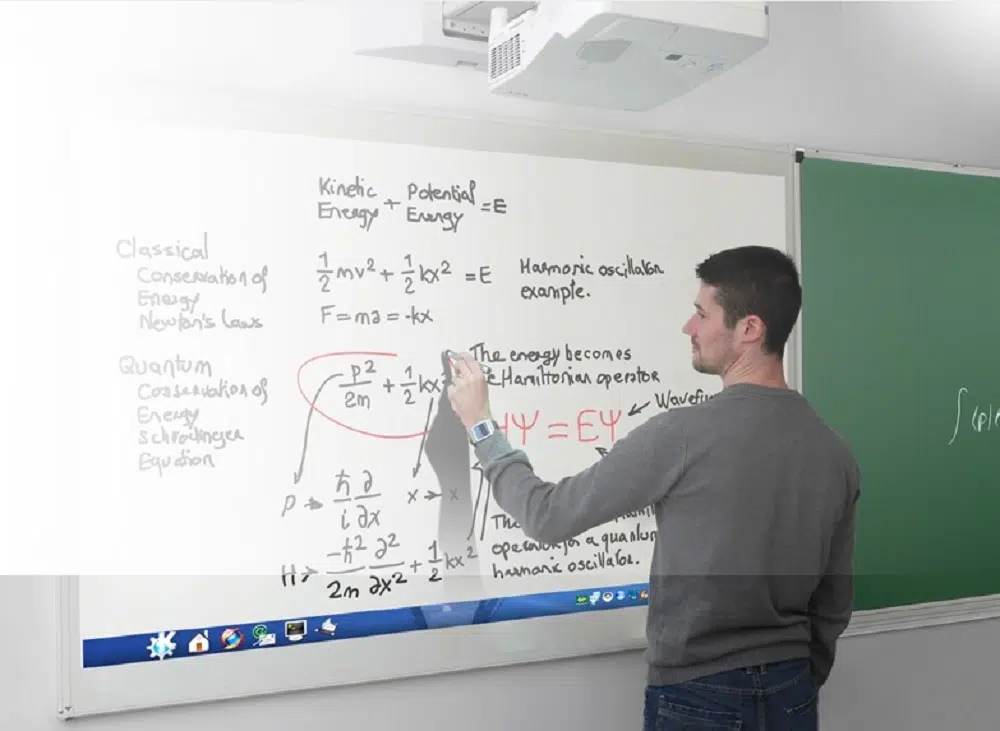 Kinetic Energy + Potential Energy = E
Classical
Conservation of
Energy
Newton's Laws
½mv² + ½kx² = E
Harmonic oscillator
example.
F = ma = -kx
Quantum
Conservation of
Energy
Schrodinger
Equation
p²/2m + ½kx
The energy becomes
Hamiltonian operator
Ψ = EΨ
P → ħ/i ∂/∂x
x → x
H → -ħ²/2m ∂²/∂x² + ½kx²
operator for a quantum
harmonic oscillator.
∫